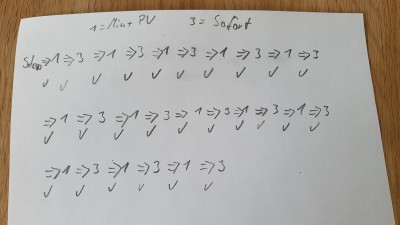 1 = Min+ PV 3 = Sofort
Stop ⇒1 ⇒3 ⇒1 ⇒3 ⇒1 ⇒3 ⇒1 ⇒3 ⇒1 ⇒3
✓ ✓ ✓ ✓ ✓ ✓ ✓ ✓ ✓ ✓
⇒1 ⇒3 ⇒1 ⇒3 ⇒1 ⇒3 ⇒1 ⇒3 ⇒1 ⇒3
✓ ✓ ✓ ✓ ✓ ✓ ✓ ✓ ✓ ✓
⇒1 ⇒3 ⇒1 ⇒3 ⇒1 ⇒3
✓ ✓ ✓ ✓ ✓ ✓